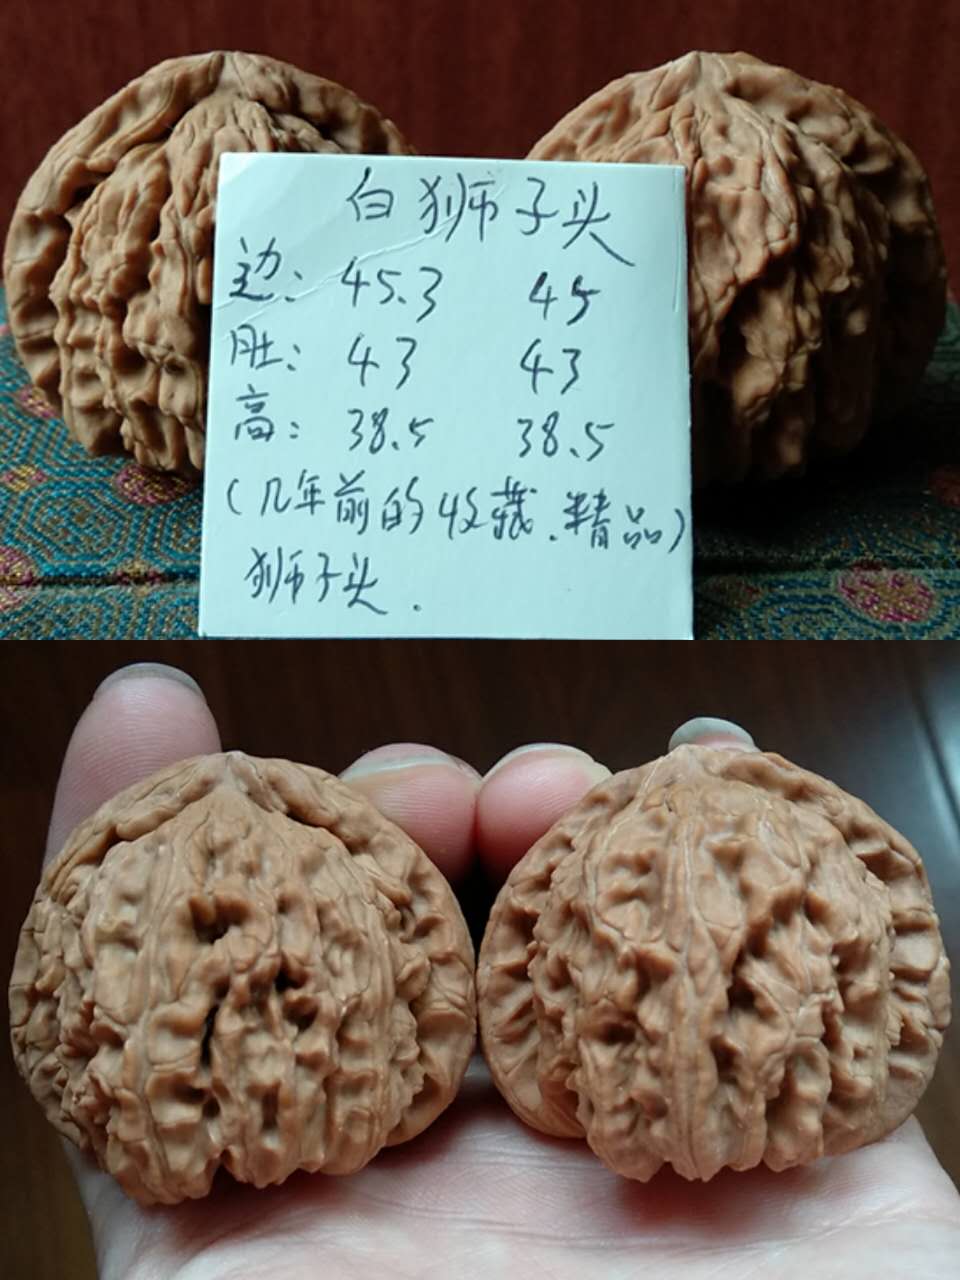 白狮子头
边: 45.3 45
肚: 43 43
高: 38.5 38.5
(几年前的收藏.精品)
狮子头.